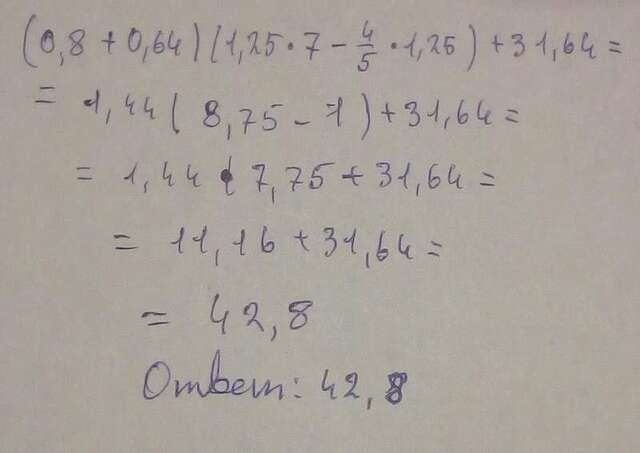 (0,8 + 0,64) (1,25 · 7 - 4/5 · 1,25) + 31,64 =
= 1,44 ( 8,75 - 1 ) + 31,64 =
= 1,44 · 7,75 + 31,64 =
= 11,16 + 31,64 =
= 42,8
Ответ: 42,8